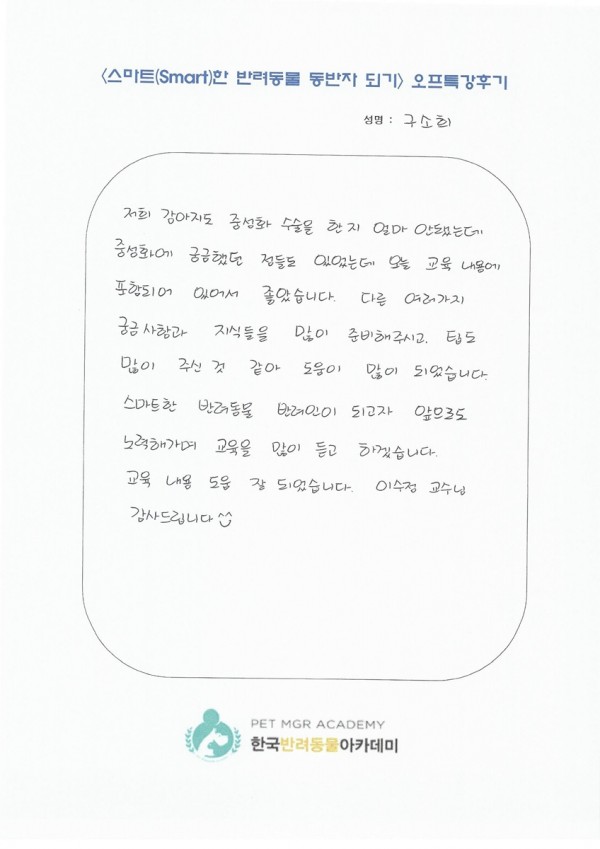 <스마트(Smart)한 반려동물 동반자 되기> 오프특강후기
성명 : 구소희
저희 강아지도 중성화 수술을 한지 얼마 안됐는데
중성화에 궁금했던 점들도 있었는데 오늘 교육 내용에
포함되어 있어서 좋았습니다. 다른 여러가지
궁금사항과 지식들을 많이 준비해주시고, 팁도
많이 주신 것 같아 도움이 많이 되었습니다.
스마트한 반려동물 반려인이 되고자 앞으로도
노력해가며 교육을 많이 듣고 하겠습니다.
교육 내용 도움 잘 되었습니다. 이수정 교수님
감사드립니다
PET MGR ACADEMY
한국반려동물아카데미